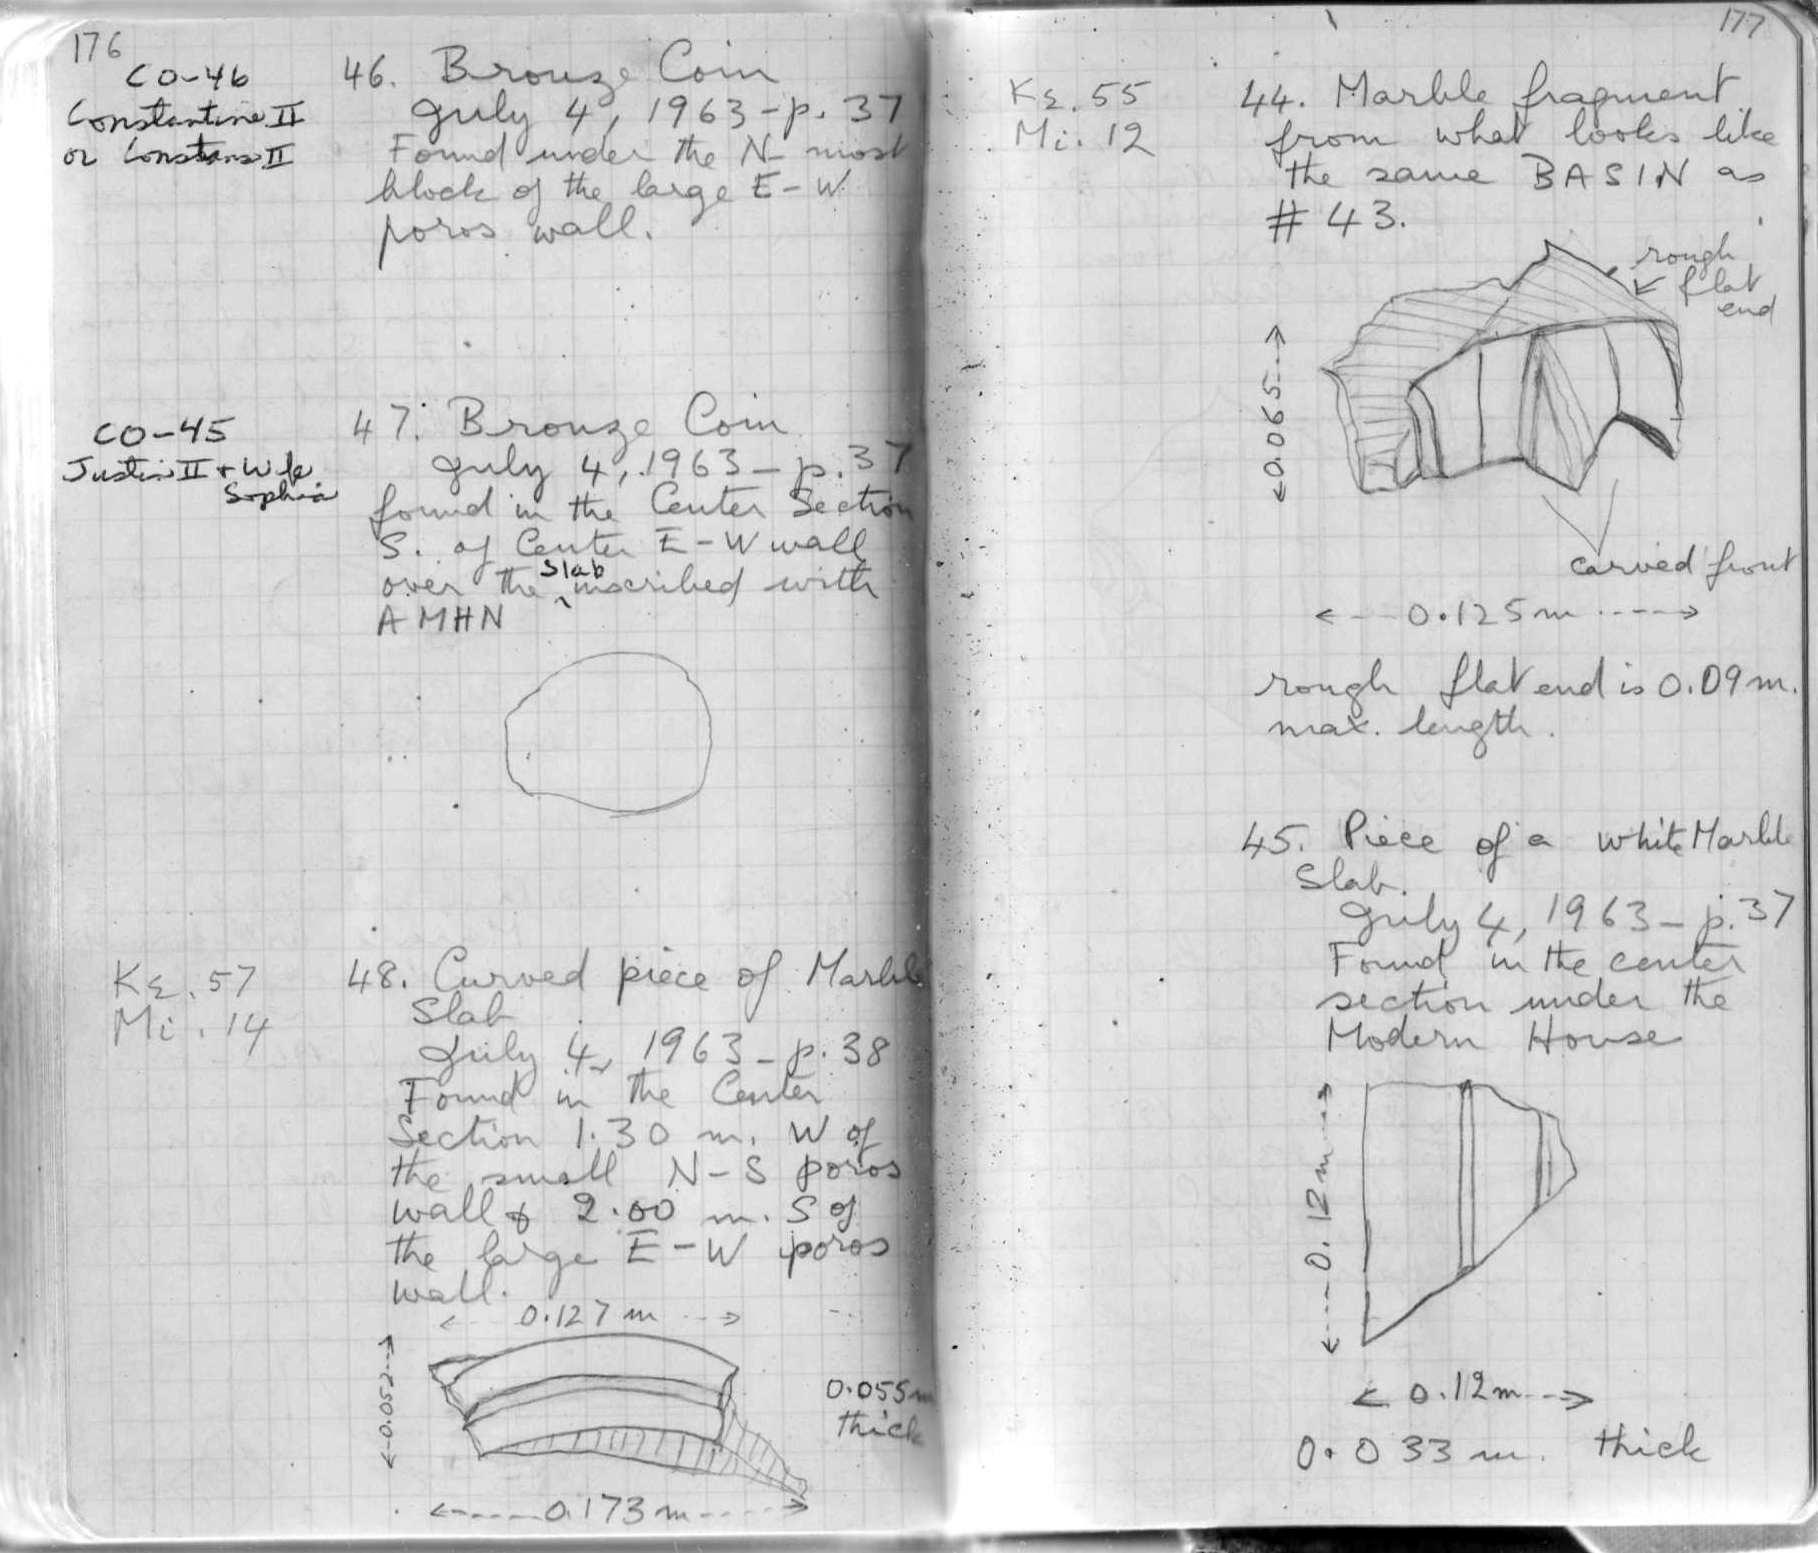 176
CO-46
Constantine II
or Constans II
46. Bronze Coin
July 4, 1963 - p. 37
Found under the N- most
block of the large E-W
poros wall.
CO-45
Justin II + Wife
Sophia
47. Bronze Coin
July 4, 1963 - p. 37
found in the Center Section
S. of Center E-W wall
over the slab inscribed with
AMHN
ΚΣ. 57
Mi. 14
48. Curved piece of Marble
Slab
July 4, 1963 - p. 38
Found in the Center
Section 1.30 m. W of
the small N-S poros
wall & 2.00 m. S of
the large E-W poros
wall.
0.127 m
0.052
0.055m
thick
0.173 m
177
ΚΣ. 55
Mi. 12
44. Marble fragment
from what looks like
the same BASIN as
# 43.
rough
flat
end
0.065
carved front
0.125 m
rough flat end is 0.09 m.
max. length.
45. Piece of a white Marble
Slab.
July 4, 1963 - p. 37
Found in the center
section under the
Modern House
0.12 m
0.12 m
0.033 m. thick